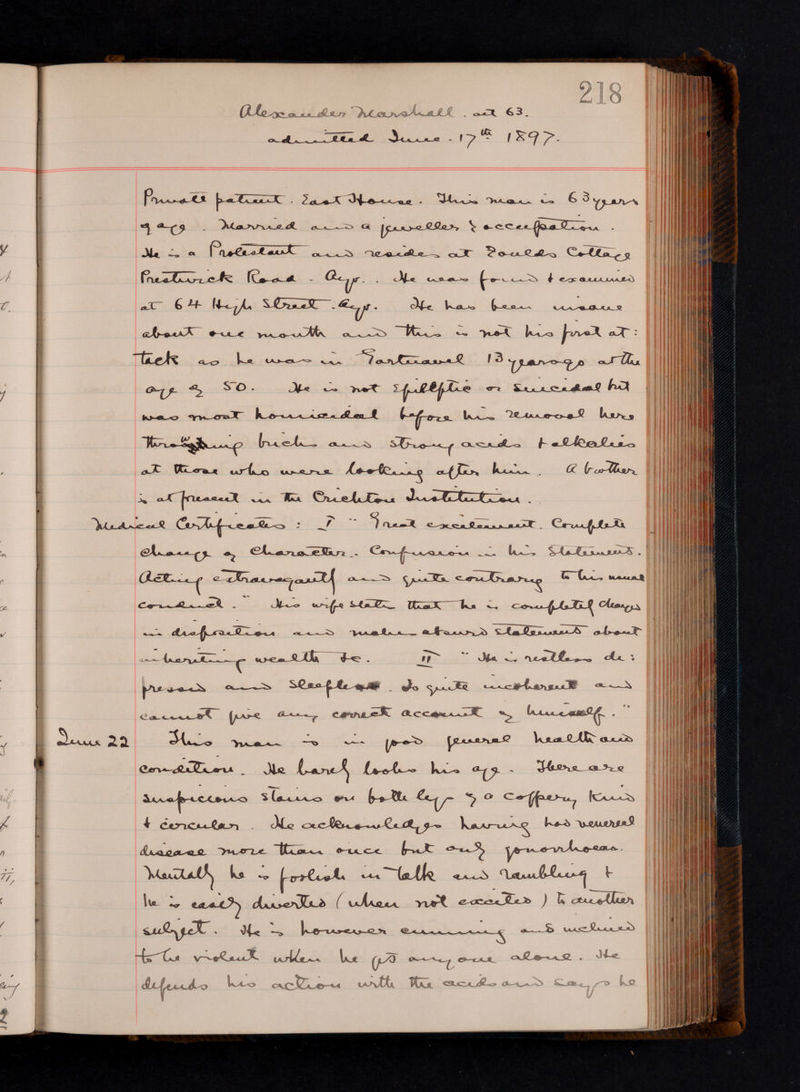 218
Alexander Marshall. aet 63.
admitted June - 17th 1897.
Private patient. East House. This man is 63 years
of age. Married and a jeweller by occupation.
He is a Protestant and resides at Coulds Cottage
Prestwick Road - Ayr. He was found & examined
at 64 High Street. Ayr. He has been insane
about one month and this is not his first at:
tack as he was in Gartnavel 13 years ago at the
age of 50. He is not Epileptic or Suicidal but
was most homicidal before his removal here
throwing bricks and strong acids & alkalies
at those who were looking after him. A brother
is at present in the Crichton Institution.
Medical Certificates: I "Great excitement. Complete
change of Character. Confusion in his Statements.
Acting extravagantly and quite contrary to his usual
conduct." His wife states that he is completely changed
in disposition and makes absurd statements about
inheriting wealth &c. II "He is restless de:
pressed and Sleepless. Is quite incoherent and
cannot give any correct account of himself."
June 22 This man is in good general health and
condition. He barely looks his age. There are
suspicious stains on both legs of a coppery kind
& circular. He acknowledges having had venereal
disease more than once but only gonorrhoea.
Mentally he is foolish in talk and rambling &
he is easily diverted (when not excited) to another
subject. He is however cunning and inclined
to be violent when he gets anyone alone. He
defends his action with the acids and says he